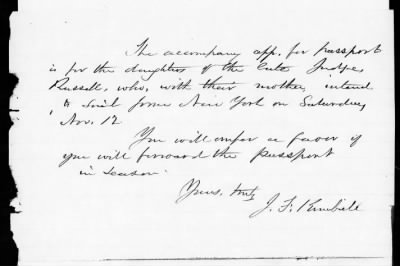 The accompany app. for passport
is for the daughters of the late Judge
Russell, who, with their mother, intend
to sail from New York on Saturday,
Nov. 12.
You will confer a favor if
you will forward the passport
in season.
Yours, truly
J. F. Kimball